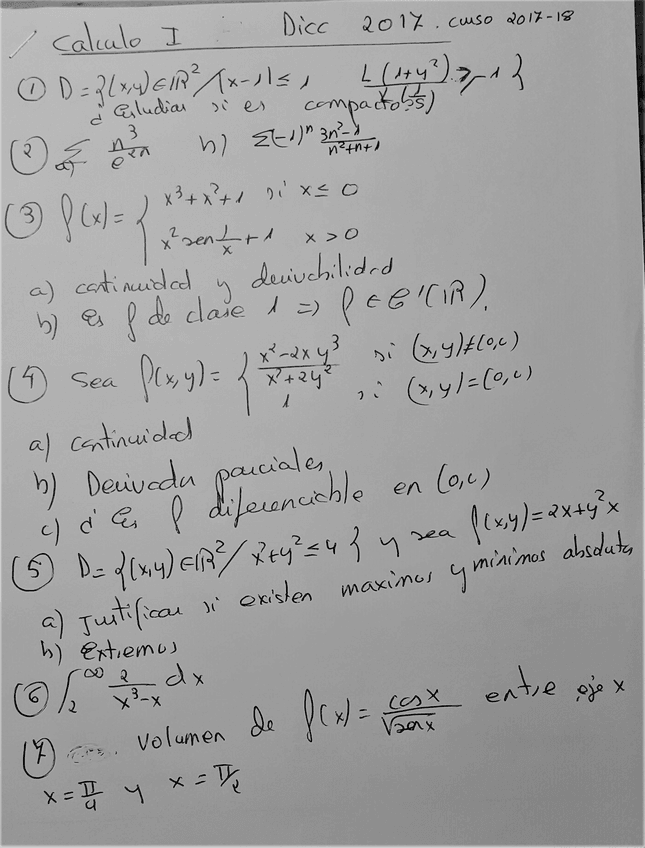 Calculo I Dicc 2017. curso 2017-18
① D = {(x,y) ∈ IR² / |x-1| ≤ 1 L(1+y²) ≥ -1 }
¿ Estudiar si es compacto?
② a) Σ n³/e²ⁿ b) Σ(-1)ⁿ (3n²-1)/(n²+n+1)
③ f(x) = { x³+x²+1 si x ≤ 0
x² sen 1/x + 1 x > 0
a) continuidad y derivabilidad
b) es f de clase 1 => f ∈ C'(IR).
④ Sea f(x,y) = { (x²-2xy³)/(x²+2y²) si (x,y)≠(0,0)
1 si (x,y)=(0,0)
a) continuidad
b) Derivada parciales
c) ¿ Es f diferenciable en (0,0)
⑤ D = {(x,y) ∈ IR² / x²+y² ≤ 4 } y sea f(x,y) = 2x+y²x
a) Justificar si existen maximos y minimos absolutos
b) Extremos
⑥ ∫₂^∞ 2/(x³-x) dx
⑦ Volumen de f(x) = cosx/√senx entre eje x
x = π/4 y x = π/2